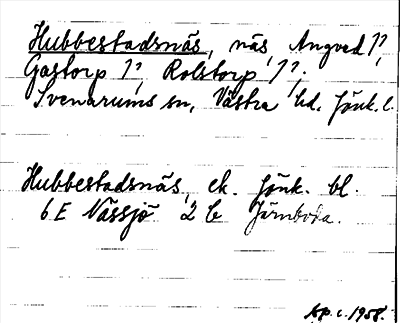 Hubbestadsnäs, näs, Angved 1?,
Gastorp 1?, Rolstorp 1?;
Svenarums sn, Västra hd. Jönk. l.
Hubbestadsnäs, ek. Jönk. bl.
6 E Nässjö 2 b Järnboda.
Ap. c. 1958.